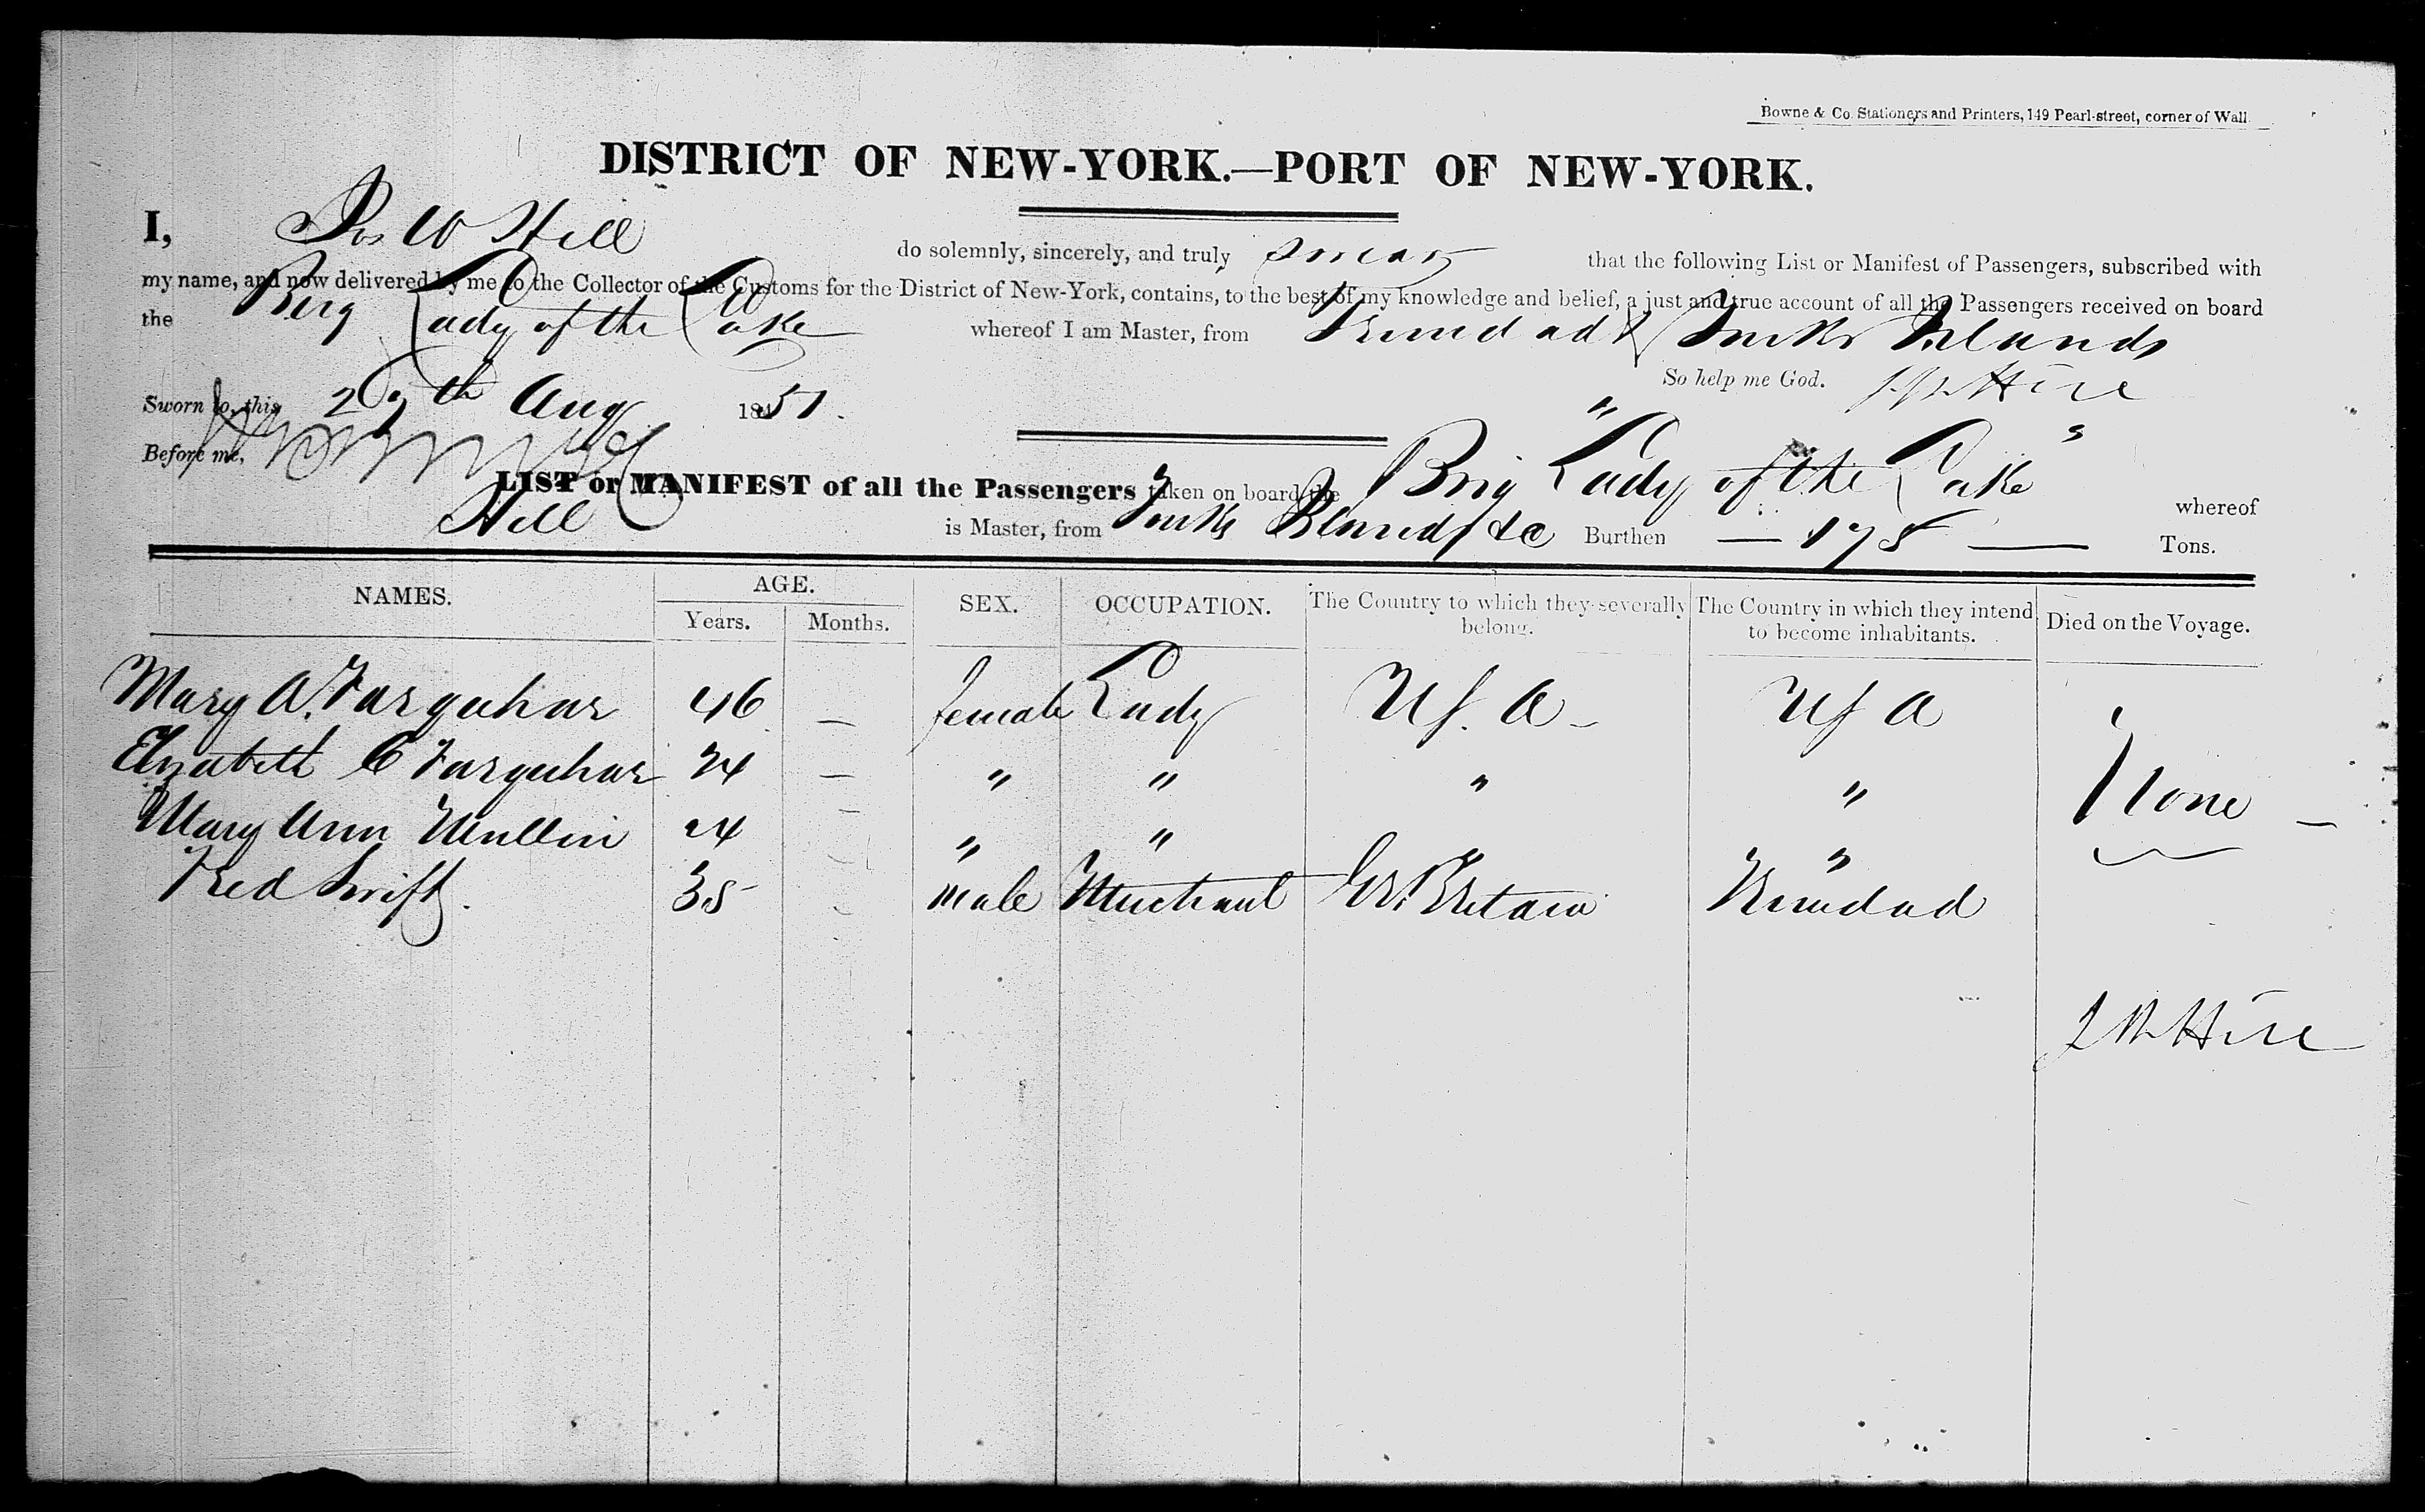 Bowne & Co. Stationers and Printers, 149 Pearl-street, corner of Wall
DISTRICT OF NEW-YORK.—PORT OF NEW-YORK.
I, Jos W Hill do solemnly, sincerely, and truly swear that the following List or Manifest of Passengers, subscribed with
my name, and now delivered by me to the Collector of the Customs for the District of New-York, contains, to the best of my knowledge and belief, a just and true account of all the Passengers received on board
the Brig Lady of the Lake whereof I am Master, from Trinidad & Turks Islands
So help me God. J W Hill
Sworn to, this 29th Aug 1851.
Before me,
LIST or MANIFEST of all the Passengers taken on board the Brig "Lady of the Lake" whereof
Hill is Master, from Turks Island &c Burthen — 178 — Tons.
NAMES. AGE. SEX. OCCUPATION. The Country to which they severally belong. The Country in which they intend to become inhabitants. Died on the Voyage.
Years. Months.
Mary A. Farquhar 46 — female Lady U S. A — U S A
Elizabeth C Farquhar 24 — " " " " None —
Mary Ann Mullin 24 — " " "
Fred Swift. 35 — male Merchant Gr. Britain Trinidad
J W Hill